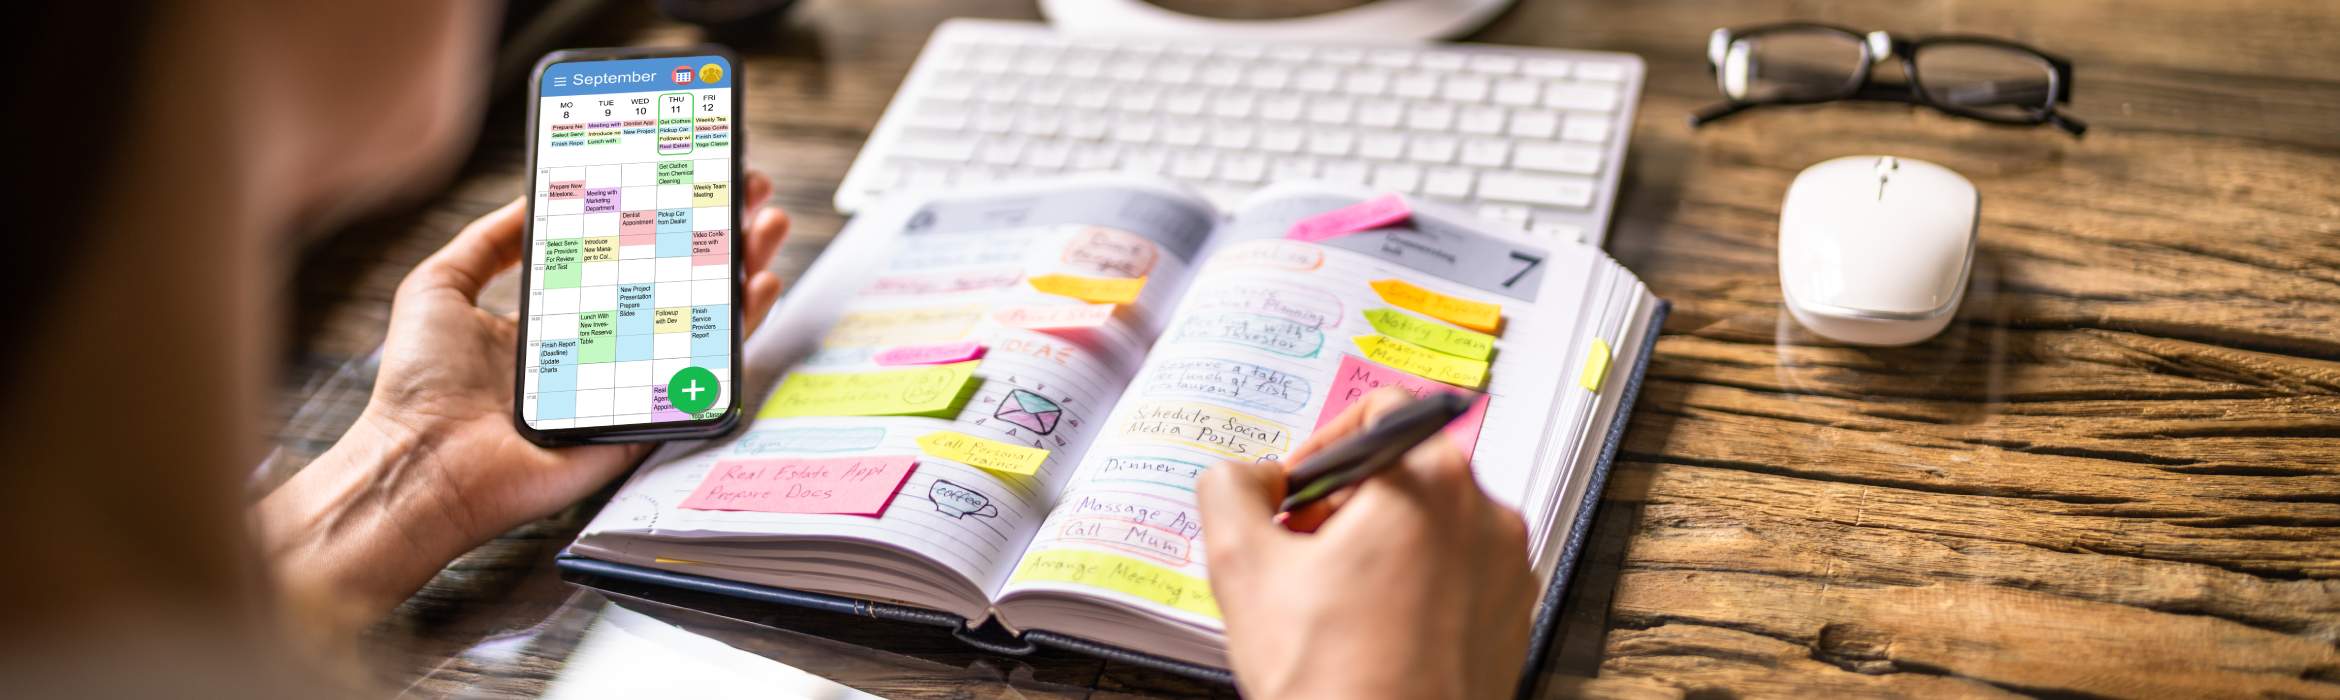 September
MO
8
TUE
9
WED
10
THU
11
FRI
12
Prepare Ne
Select Servi
Finish Repo
Meeting with
Introduce ne
Lunch with
Dentist App
New Project
Get Clothes
Pickup Car
Followup wi
Real Estate
Weekly Tea
Video Confe
Finish Servi
Yoga Classe
Prepare New
Milestone...
Select Servi-
ce Providers
For Review
And Test
Finish Report
(Deadline)
Update
Charts
Meeting with
Marketing
Department
Introduce
New Mana-
ger to Col...
Lunch With
New Inves-
tors Reserve
Table
Dentist
Appointment
New Project
Presentation
Prepare
Slides
Get Clothes
from Chemical
Cleaning
Pickup Car
from Dealer
Followup
with Dev
Real
Agen
Appoin
Weekly Team
Meeting
Video Confe-
rence with
Clients
Finish
Service
Providers
Report
Yoga Classe
+
6
IDEAS
Call Personal
Trainer
Real Estate Appt
Prepare Docs
coffee
7
Planning
with
Investor
Reserve a table
for lunch at fish
restaurant
Schedule Social
Media Posts
Dinner
Massage App
Call Mum
Arrange Meeting
Notify Team
Reserve
Meeting Room